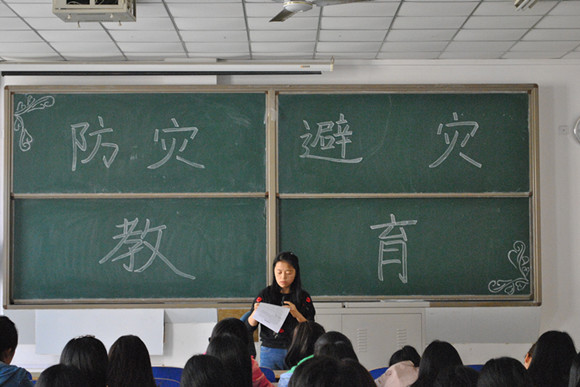 防灾避灾
教育